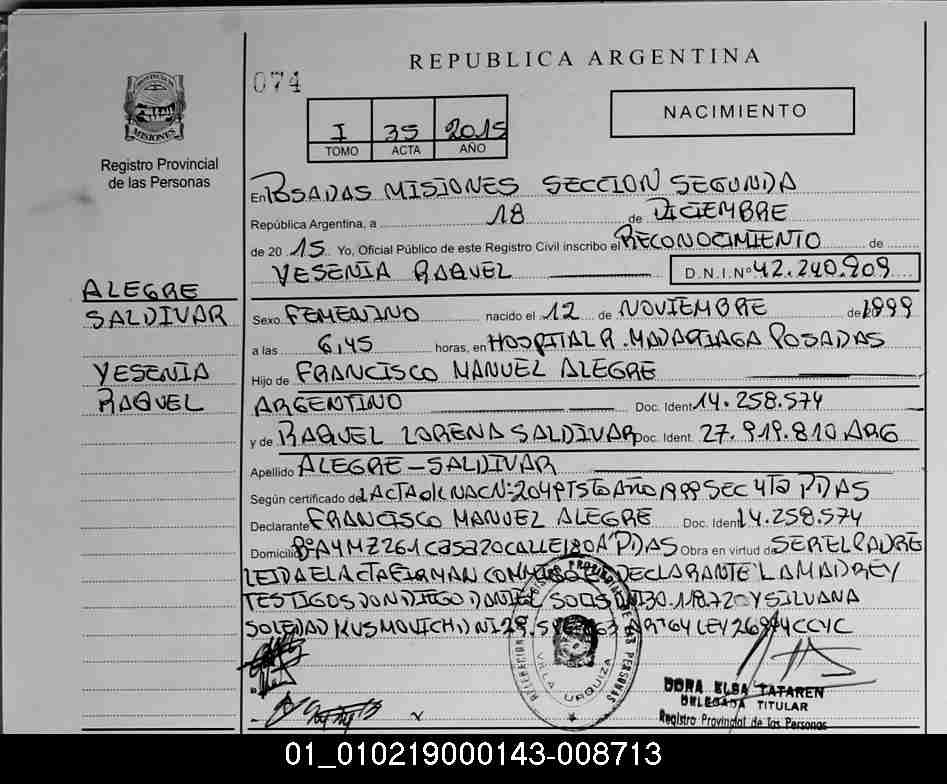 REPUBLICA ARGENTINA
074
PROVINCIA
MISIONES
Registro Provincial
de las Personas
I 35 2015
TOMO ACTA AÑO
NACIMIENTO
En POSADAS MISIONES SECCION SEGUNDA
República Argentina, a 18 de DICIEMBRE
de 2015 Yo, Oficial Público de este Registro Civil inscribo el RECONOCIMIENTO de
YESENIA RAQUEL D.N.I.Nº 42.240.909
ALEGRE
SALDIVAR
YESENIA
RAQUEL
Sexo FEMENINO nacido el 12 de NOVIEMBRE de 1999
a las 6,45 horas, en HOSPITAL R. MADARIAGA POSADAS
Hijo de FRANCISCO MANUEL ALEGRE
ARGENTINO Doc. Ident 14.258.574
y de RAQUEL LORENA SALDIVAR Doc. Ident. 27.919.810 ARG
Apellido ALEGRE-SALDIVAR
Según certificado de ACTA NACN: 204 Año 1999 SEC 4TA PDAS
Declarante FRANCISCO MANUEL ALEGRE Doc. Ident 14.258.574
Domicilio Bº A4 MZ 261 CASA 20 CALLE 180 A PDAS Obra en virtud de SER EL PADRE
LEIDA EL ACTA FIRMAN DECLARANTE LA MADRE Y
TESTIGOS DON DIEGO DANIEL SOLIS Y SILVANA
SOLEDAD KUSMOVICH DNI 29. ART 64 LEY 26994 CCYC
VILLA URQUIZA
DORA ELBA TATAREN
DELEGADA TITULAR
Registro Provincial de las Personas
01_010219000143-008713